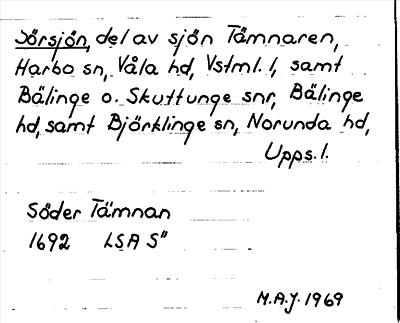 Sörsjön, del av sjön Tämnaren,
Harbo sn, Våla hd, Vstml. l, samt
Bälinge o. Skuttunge snr, Bälinge
hd, samt Björklinge sn, Norunda hd,
Upps. l.
Söder Tämnan
1692 LSA S"
M.A.J. 1969